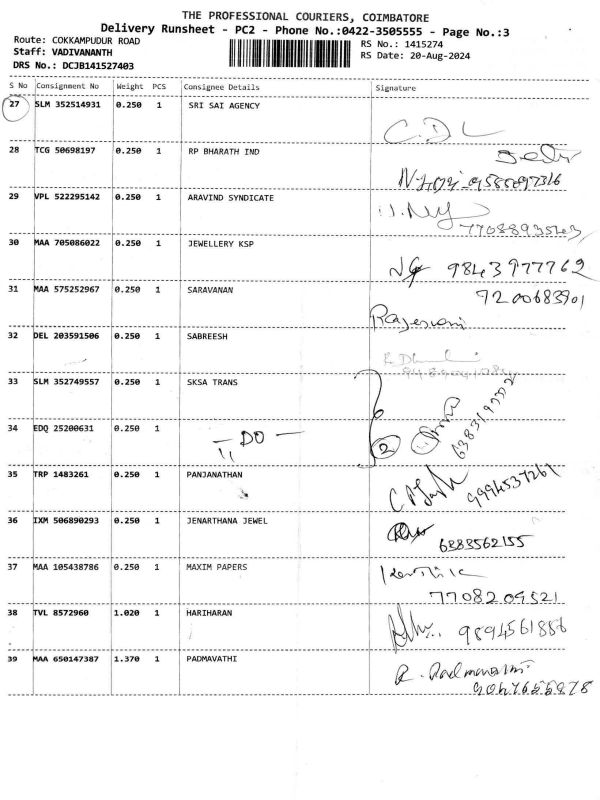 THE PROFESSIONAL COURIERS, COIMBATORE
Delivery Runsheet - PC2 - Phone No.:0422-3505555 - Page No.:3
Route: COKKAMPUDUR ROAD
RS No.: 1415274
Staff: VADIVANANTH
RS Date: 20-Aug-2024
DRS No.: DCJB141527403
S No Consignment No Weight PCS Consignee Details Signature
27 SLM 352514931 0.250 1 SRI SAI AGENCY
C.D L
28 TCG 50698197 0.250 1 RP BHARATH IND
29 VPL 522295142 0.250 1 ARAVIND SYNDICATE
7708893543
30 MAA 705086022 0.250 1 JEWELLERY KSP
9843977762
31 MAA 575252967 0.250 1 SARAVANAN
9200683901
32 DEL 203591506 0.250 1 SABREESH
33 SLM 352749557 0.250 1 SKSA TRANS
34 EDQ 25200631 0.250 1
-11 DO -
2
35 TRP 1483261 0.250 1 PANJANATHAN
9994537261
36 IXM 506890293 0.250 1 JENARTHANA JEWEL
6383562155
37 MAA 105438786 0.250 1 MAXIM PAPERS
7708209521
38 TVL 8572960 1.020 1 HARIHARAN
9894561886
39 MAA 650147387 1.370 1 PADMAVATHI
R. Padmavathi